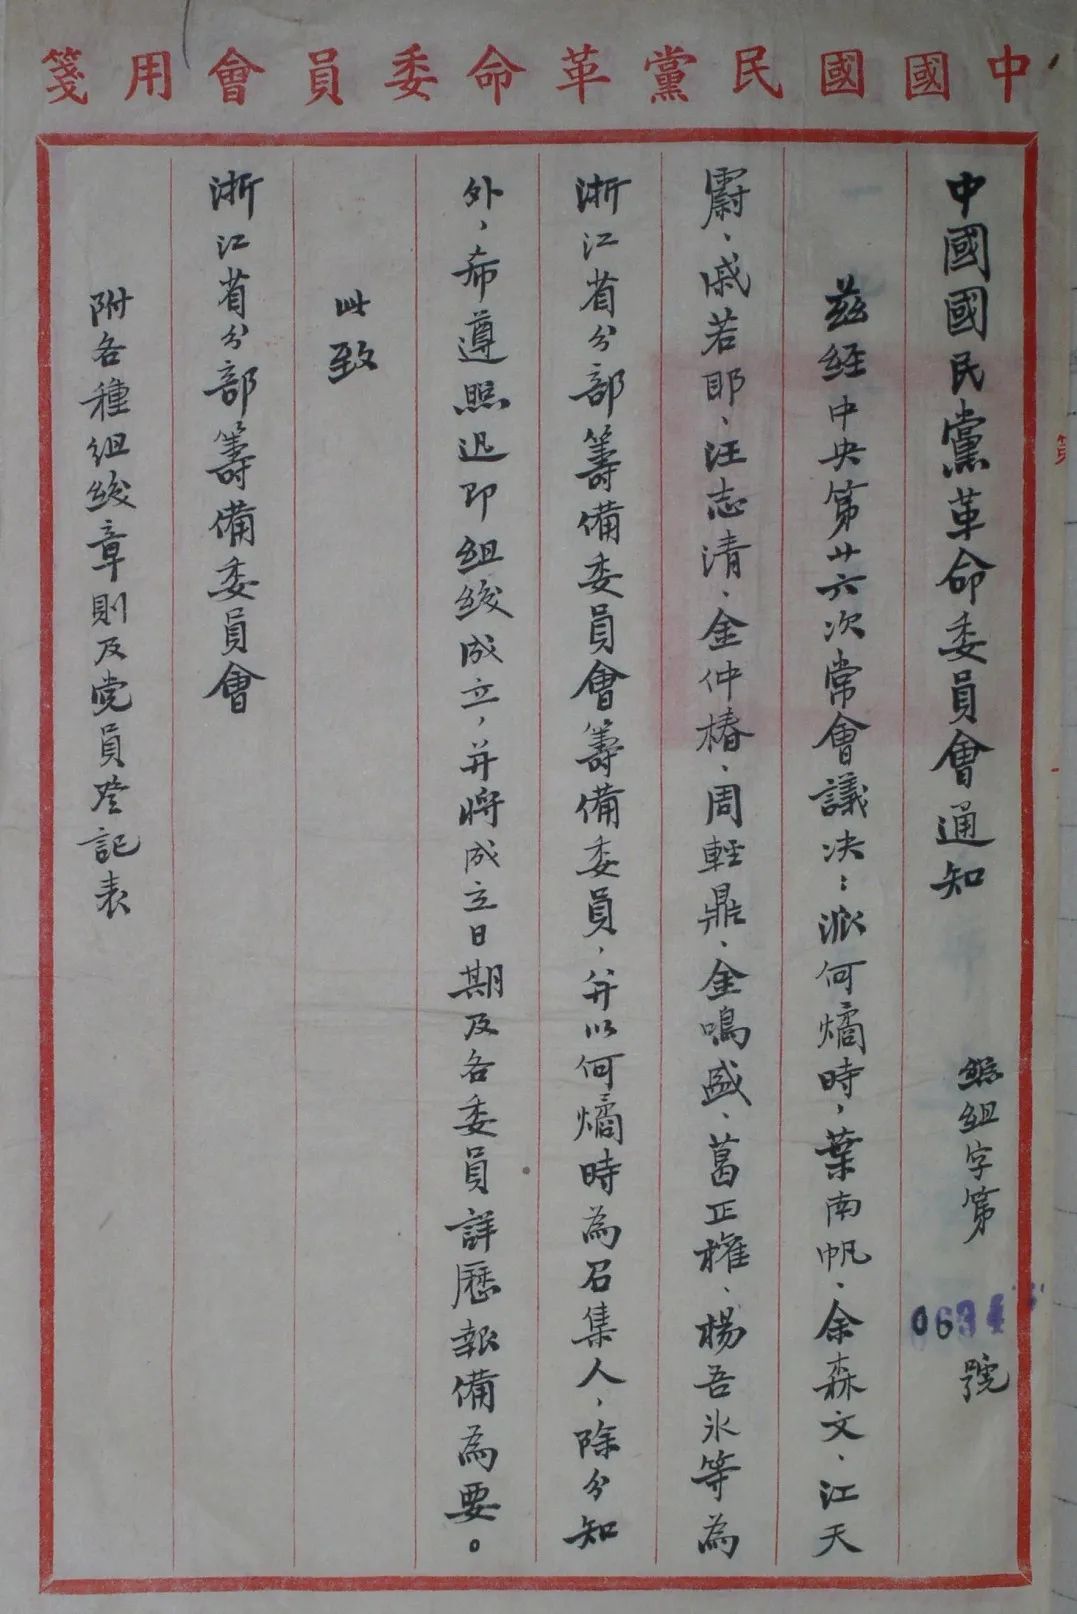 中國國民黨革命委員會用箋
中國國民黨革命委員會通知
組字第 0694 號
茲經中央第廿六次常會議决：派何燏時，葉南帆、余森文、江天
蔚、戚若耶、汪志清、金仲椿、周輕鼎、金鳴盛、葛正權、楊吾氷等為
浙江省分部籌備委員會籌備委員，并以何燏時為召集人，除分知
外，希遵照迅即組織成立，并將成立日期及各委員詳歷報備為要。
此致
浙江省分部籌備委員會
附各種組織章則及党員登記表